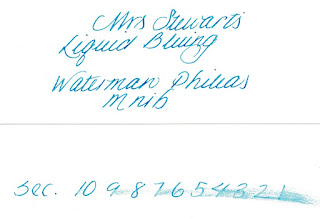 Mrs Stewarts
Liquid Bluing
Waterman Phileas
M nib
Sec. 10 9 8 7 6 5 4 3 2 1